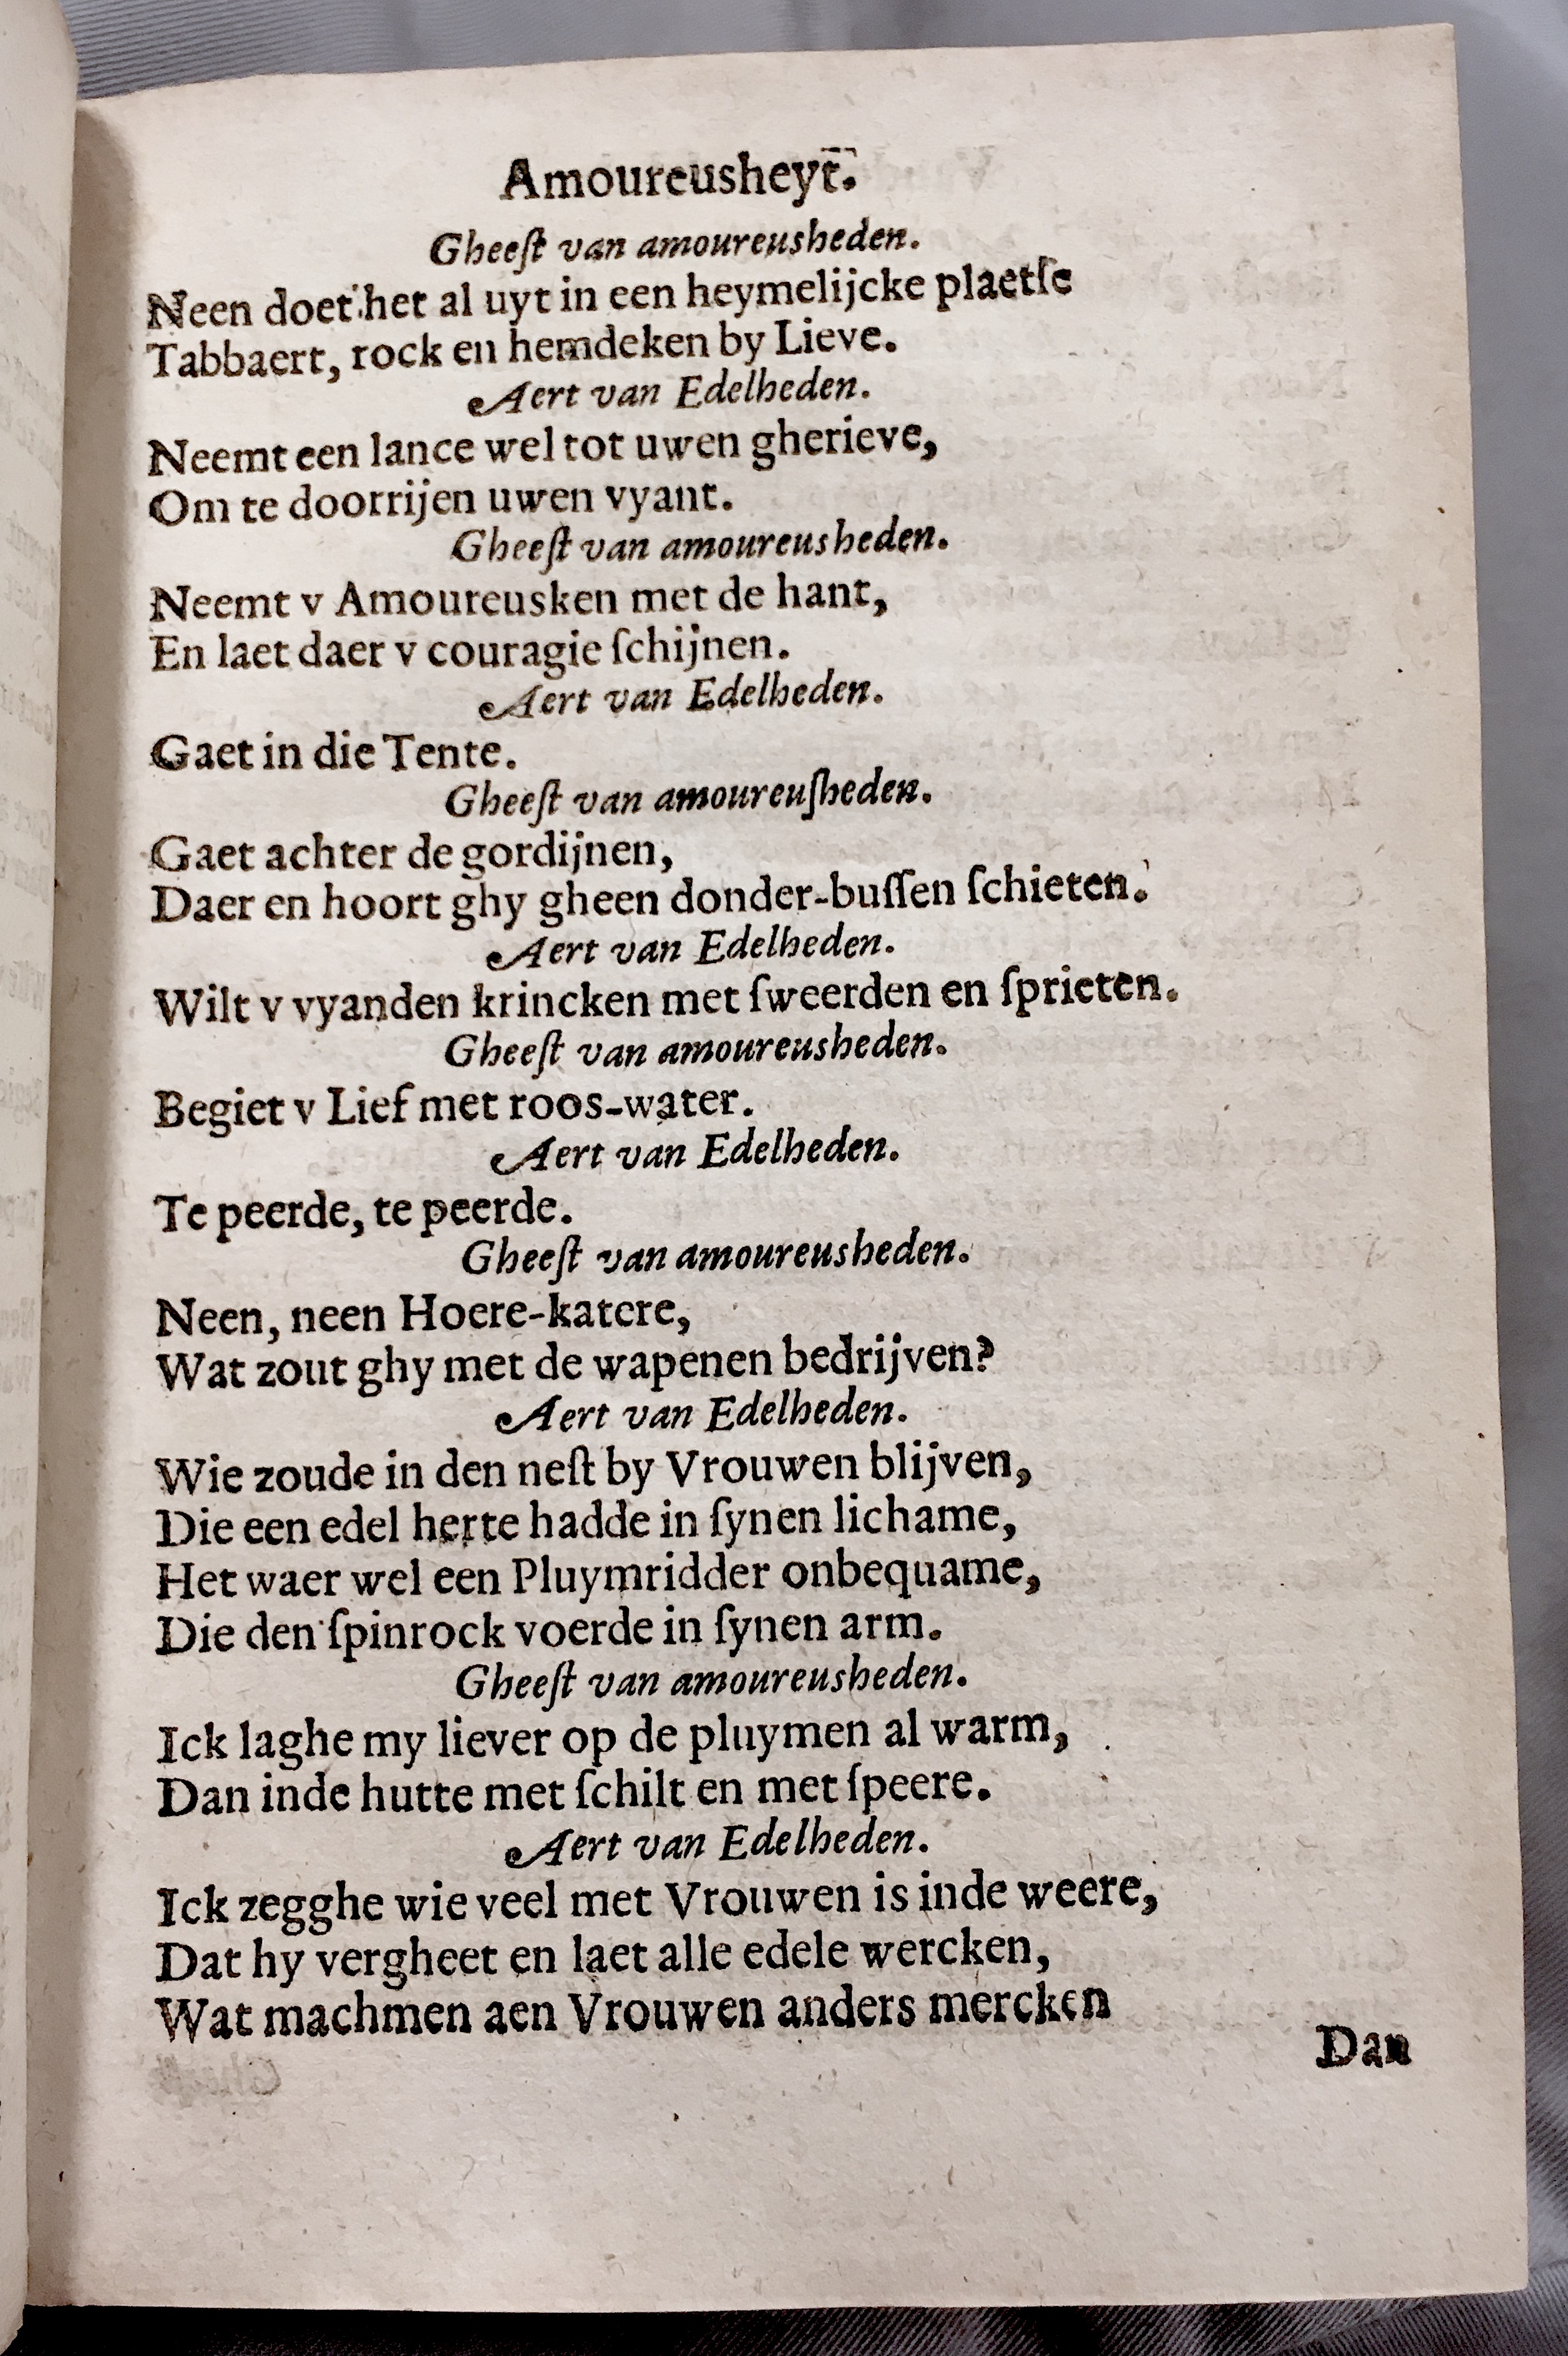 Amoureusheyt.
Gheeſt van amoureusheden.
Neen doet het al uyt in een heymelijcke plaetſe
Tabbaert, rock en hemdeken by Lieve.
Aert van Edelheden.
Neemt een lance wel tot uwen gherieve,
Om te doorrijen uwen vyant.
Gheeſt van amoureusheden.
Neemt v Amoureusken met de hant,
En laet daer v couragie ſchijnen.
Aert van Edelheden.
Gaet in die Tente.
Gheeſt van amoureuſheden.
Gaet achter de gordijnen,
Daer en hoort ghy gheen donder-buſſen ſchieten.
Aert van Edelheden.
Wilt v vyanden krincken met ſweerden en ſprieten.
Gheeſt van amoureusheden.
Begiet v Lief met roos-water.
Aert van Edelheden.
Te peerde, te peerde.
Gheeſt van amoureusheden.
Neen, neen Hoere-katere,
Wat zout ghy met de wapenen bedrijven?
Aert van Edelheden.
Wie zoude in den neſt by Vrouwen blijven,
Die een edel herte hadde in ſynen lichame,
Het waer wel een Pluymridder onbequame,
Die den ſpinrock voerde in ſynen arm.
Gheeſt van amoureusheden.
Ick laghe my liever op de pluymen al warm,
Dan inde hutte met ſchilt en met ſpeere.
Aert van Edelheden.
Ick zegghe wie veel met Vrouwen is inde weere,
Dat hy vergheet en laet alle edele wercken,
Wat machmen aen Vrouwen anders mercken
Dan